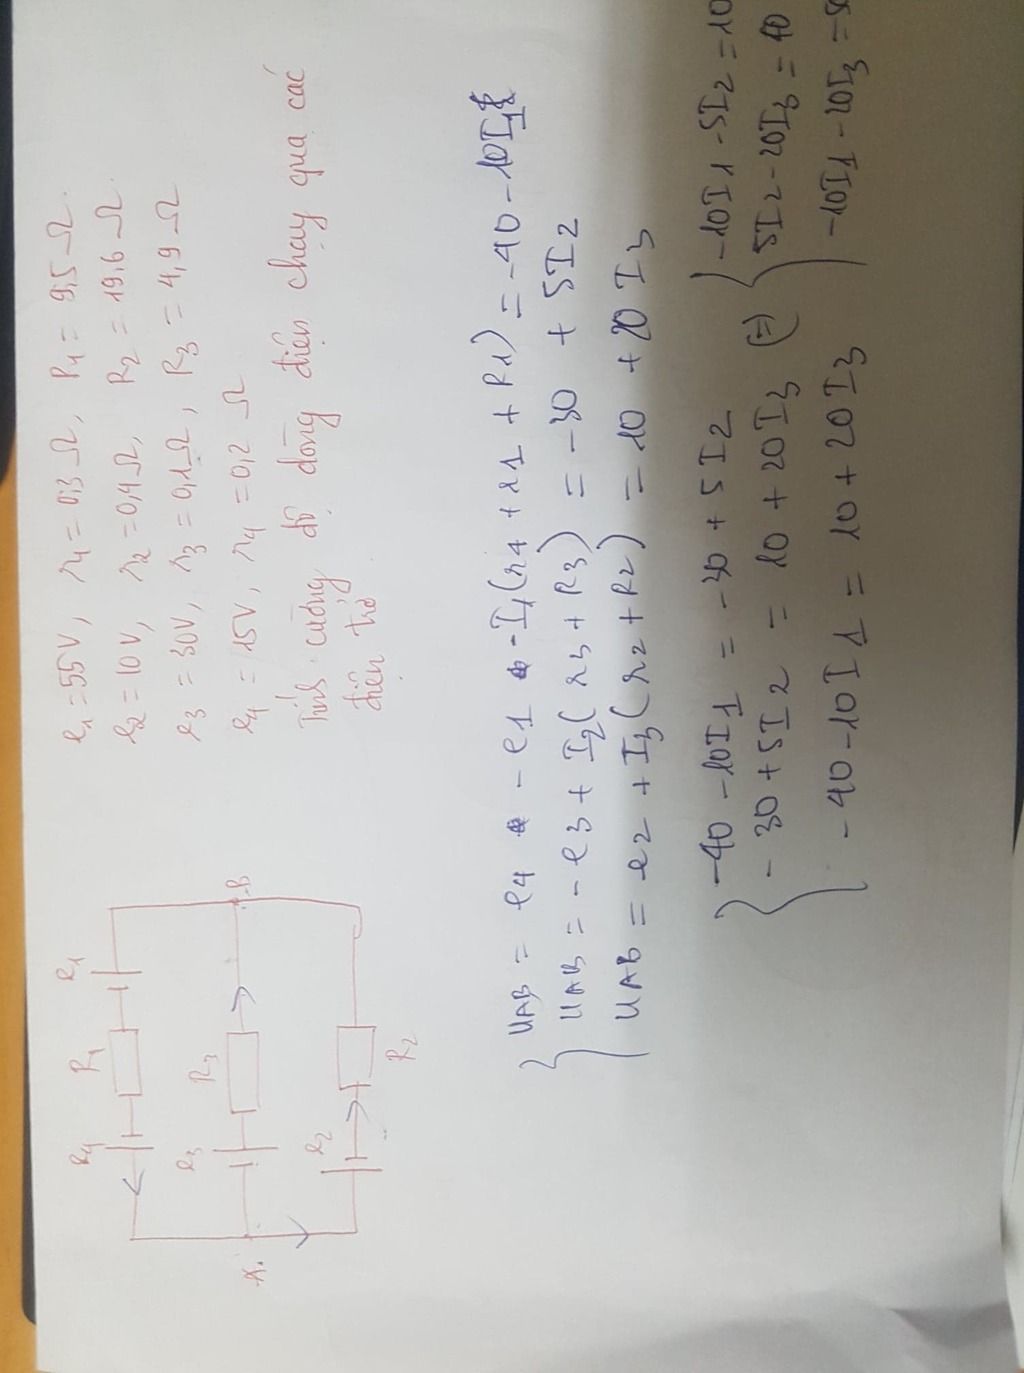 e1 = 55V, r1 = 0,3 Ω, R1 = 9,5 Ω.
e2 = 10V, r2 = 0,4 Ω, R2 = 19,6 Ω.
e3 = 30V, r3 = 0,1 Ω, R3 = 4,9 Ω
e4 = 15V, r4 = 0,2 Ω
Tính cường độ dòng điện chạy qua các
điện trở
e4 R1 e1
e3 R3
A B
e2
R2
UAB = e4 - e1 - I1(r4 + r1 + R1) = -40 - 10I1
UAB = - e3 + I2(r3 + R3) = -30 + 5I2
UAB = e2 + I3(r2 + R2) = 10 + 20I3
-40 - 10I1 = -30 + 5I2
-30 + 5I2 = 10 + 20I3 (=)
-40 - 10I1 = 10 + 20I3
-10I1 - 5I2 = 10
5I2 - 20I3 = 40
-10I1 - 20I3 =